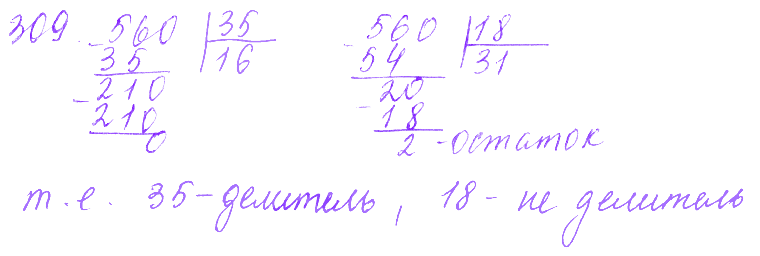 309. -560 |35 -560 |18
35 16 54 31
-210 20
210 -18
0 2 - остаток
т.е. 35 - делитель, 18 - не делитель